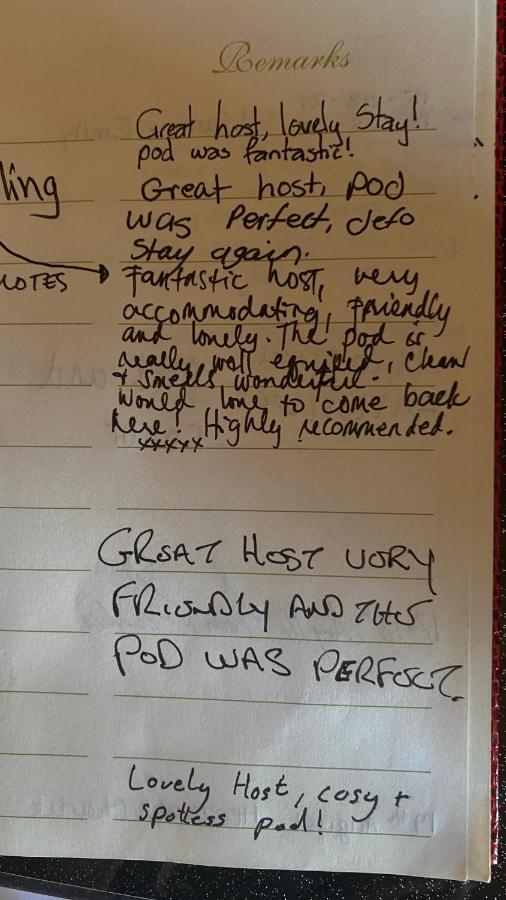 Remarks
Great host, lovely Stay!
pod was fantastic!
ling
Great host, pod
was Perfect, defo
Stay again.
NOTES
Fantastic host, very
accommodating, friendly
and lovely. The pod is
really well equiped, clean
+ smells wonderful.
Would love to come back
here! Highly recommended.
xxxxx
GREAT HOST VERY
FRIENDLY AND THE
POD WAS PERFECT.
Lovely Host, cosy +
spotless pod!